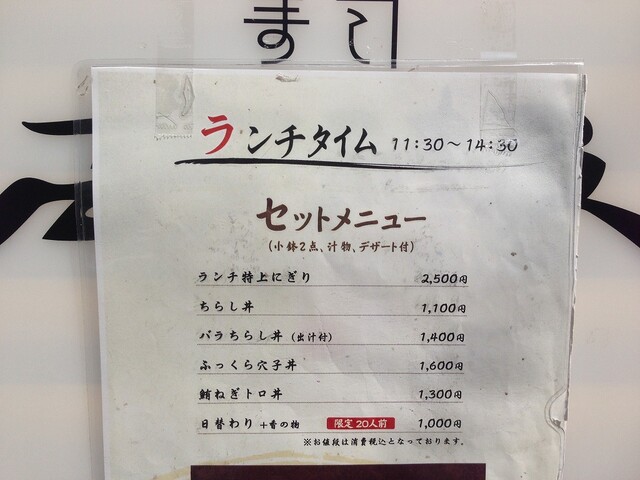 ランチタイム 11:30～14:30
セットメニュー
(小鉢2点、汁物、デザート付)
ランチ特上にぎり 2,500円
ちらし丼 1,100円
バラちらし丼 (出汁付) 1,400円
ふっくら穴子丼 1,600円
鮪ねぎトロ丼 1,300円
日替わり +香の物 限定20人前 1,000円
※お値段は消費税込となっております。